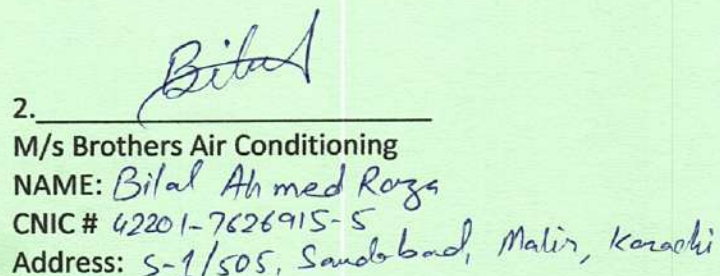 Bilal
2.
M/s Brothers Air Conditioning
NAME: Bilal Ahmed Raza
CNIC # 42201-7626915-5
Address: S-1/505, Saudabad, Malir, Karachi